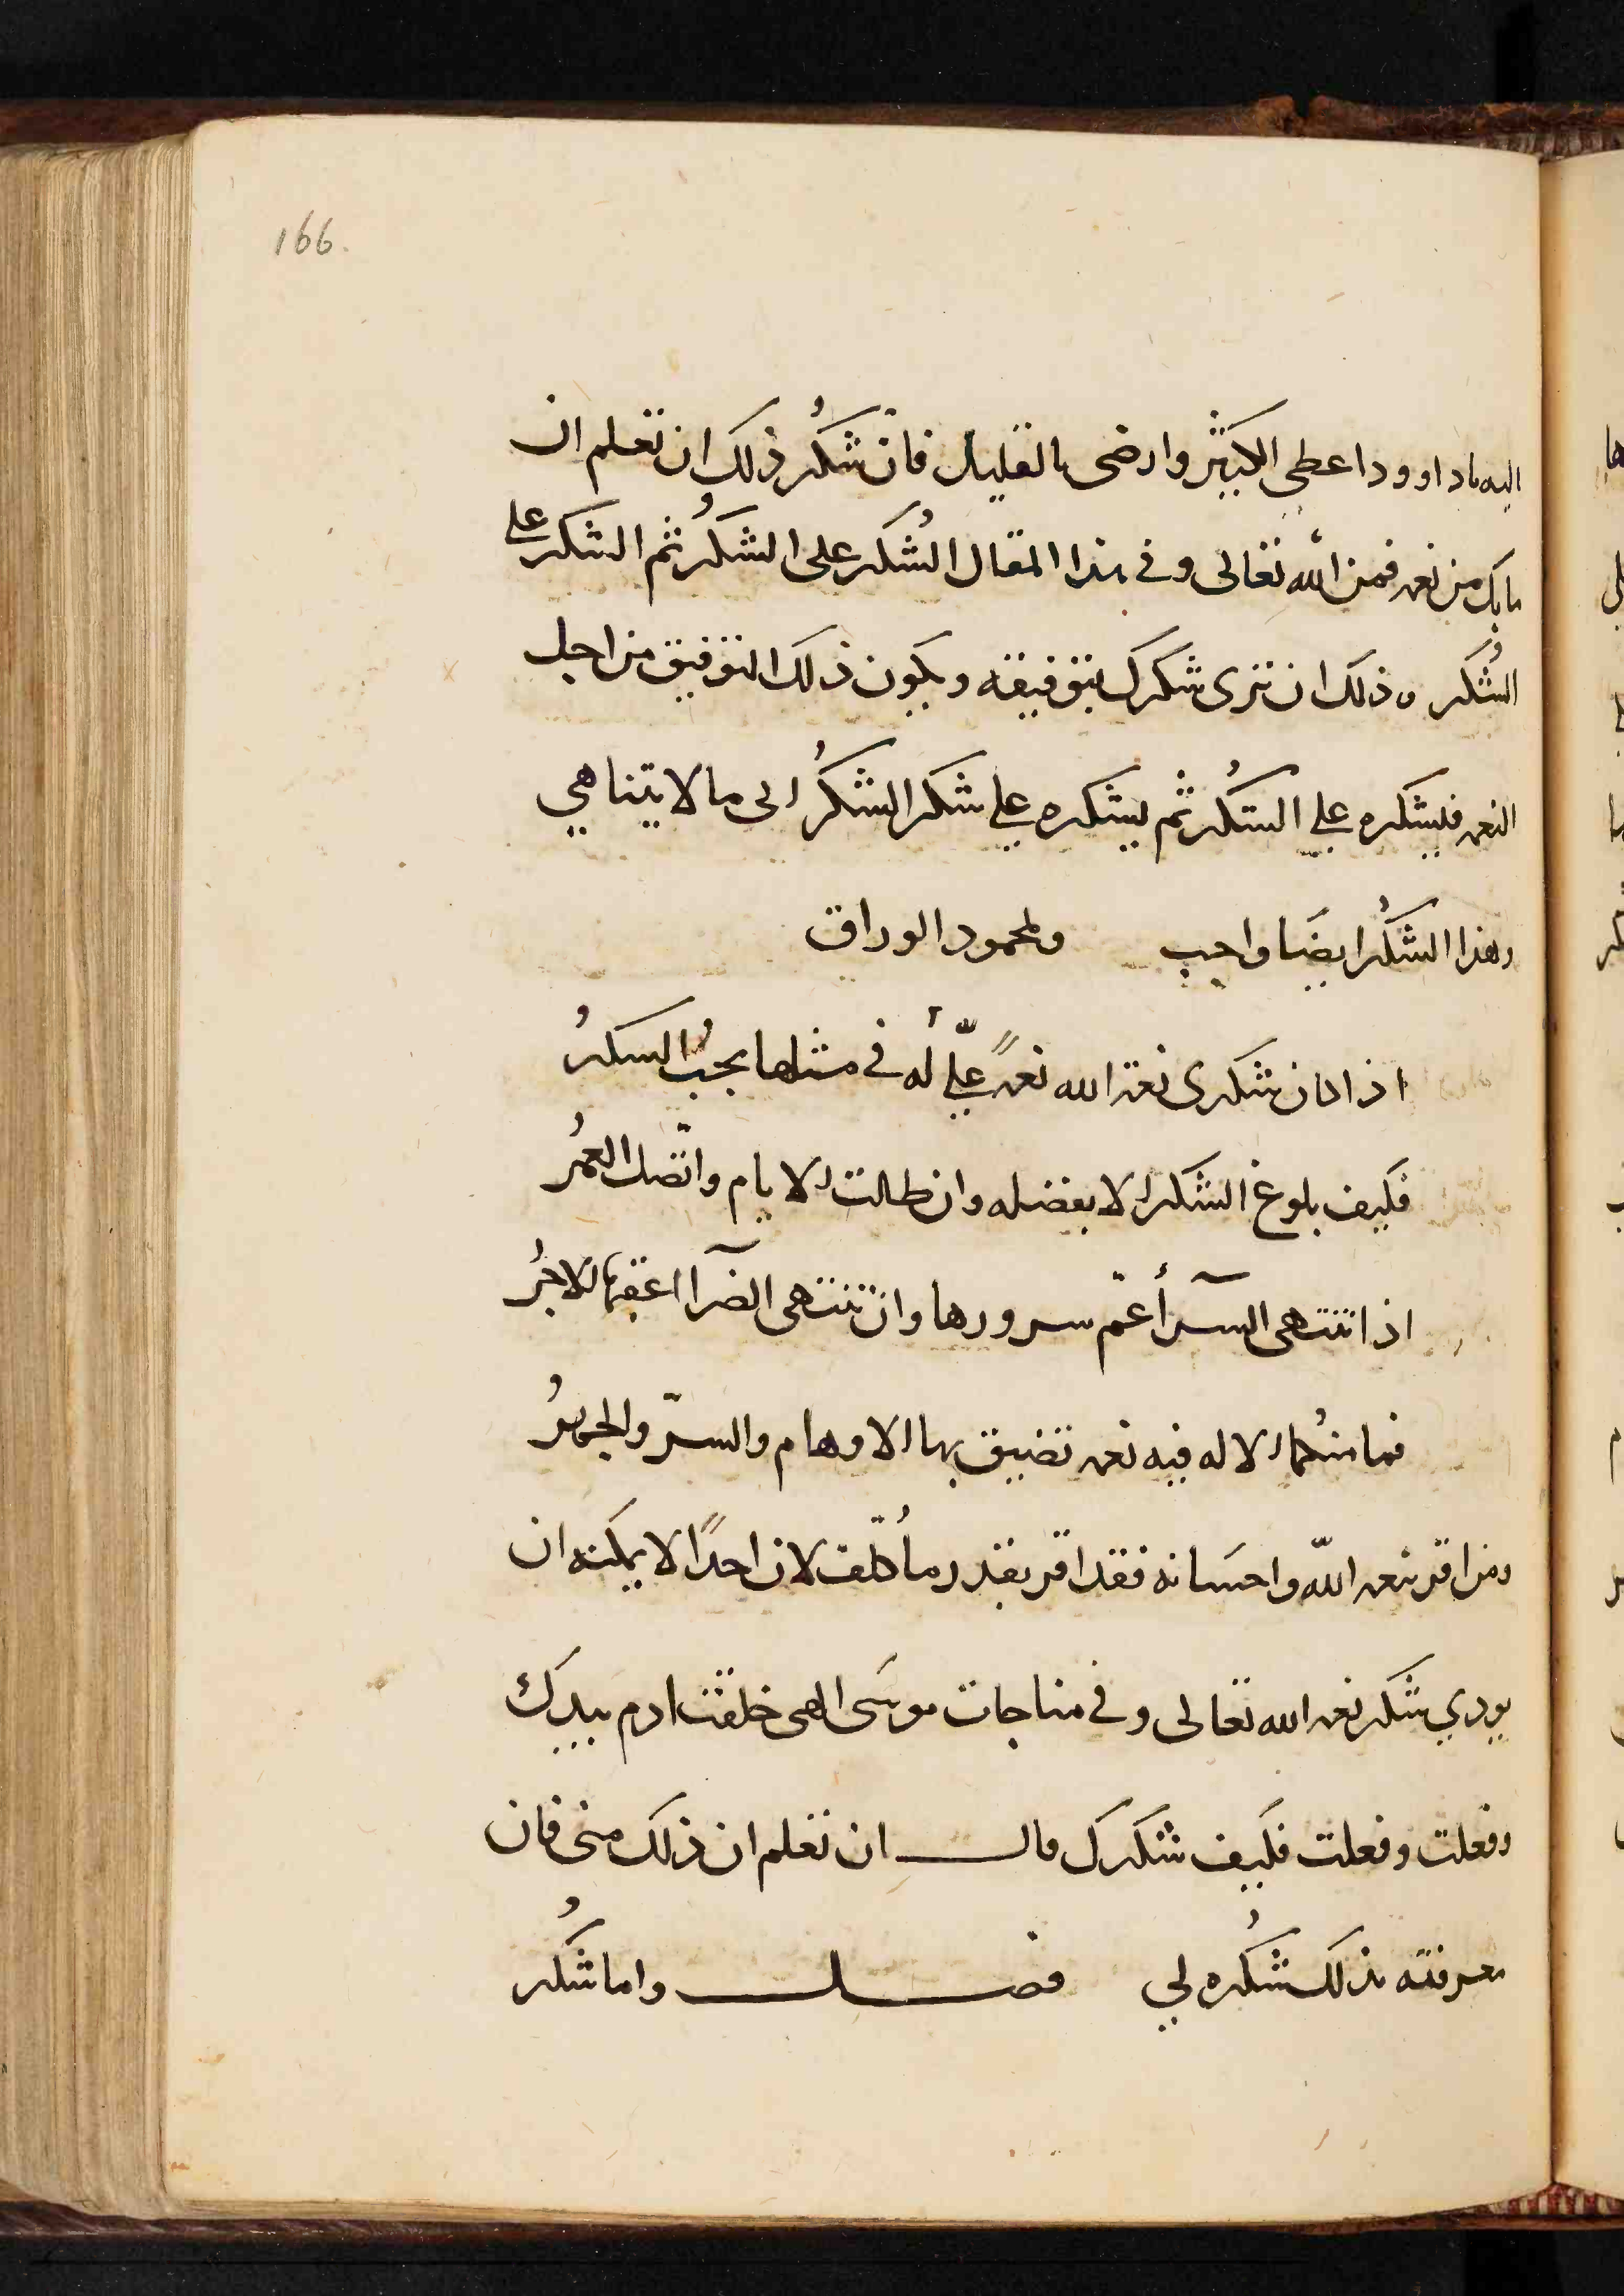 166.
اليه ياداوود اعطى الكثير وارضى بالقليل فان شكرُ ذلك ان تعلم ان
ما بك من نعمه فمن الله تعالى وفي هذا المقال الشُكر على الشكرُ ثم الشكر على
الشُكر وذلك ان ترى شكرك بتوفيقه ويكون ذلك التوفيق من اجل
النعمه فليشكره علي الشكُر ثم يشكره علي شكر الشكرُ الى ما لا يتناهي
وهذا الشكُر ايضَا واجب ولمحمود الوراق
اذا كان شكرى نعمة الله نعمةً عليّ له في مثلها يجبُ الشكرُ
فكيف بلوغ الشكر الا بفضله وان طالت الايام واتّصل العمُر
اذا تنتهى السرآ أعمّ سرورها وان تنتهى الضرآ اعقبها الاجرُ
فما منهُما الا له فيه نعمه تضيق بها الاوهام والسرّ والجهرُ
ومن اقر بنعمه اللّه واحسَانه فقد اقر بقدر ما كُلّف لان احدًا لا يمكنه ان
يودي شكر نعمه الله تعالى وفي مناجات موسَى الهى خلقت ادم بيدك
وفعلت وفعلت فكيف شكرك قال ان تعلم ان ذلك منى فان
معرفته بذلك شكُره لي فصل واما شكُر